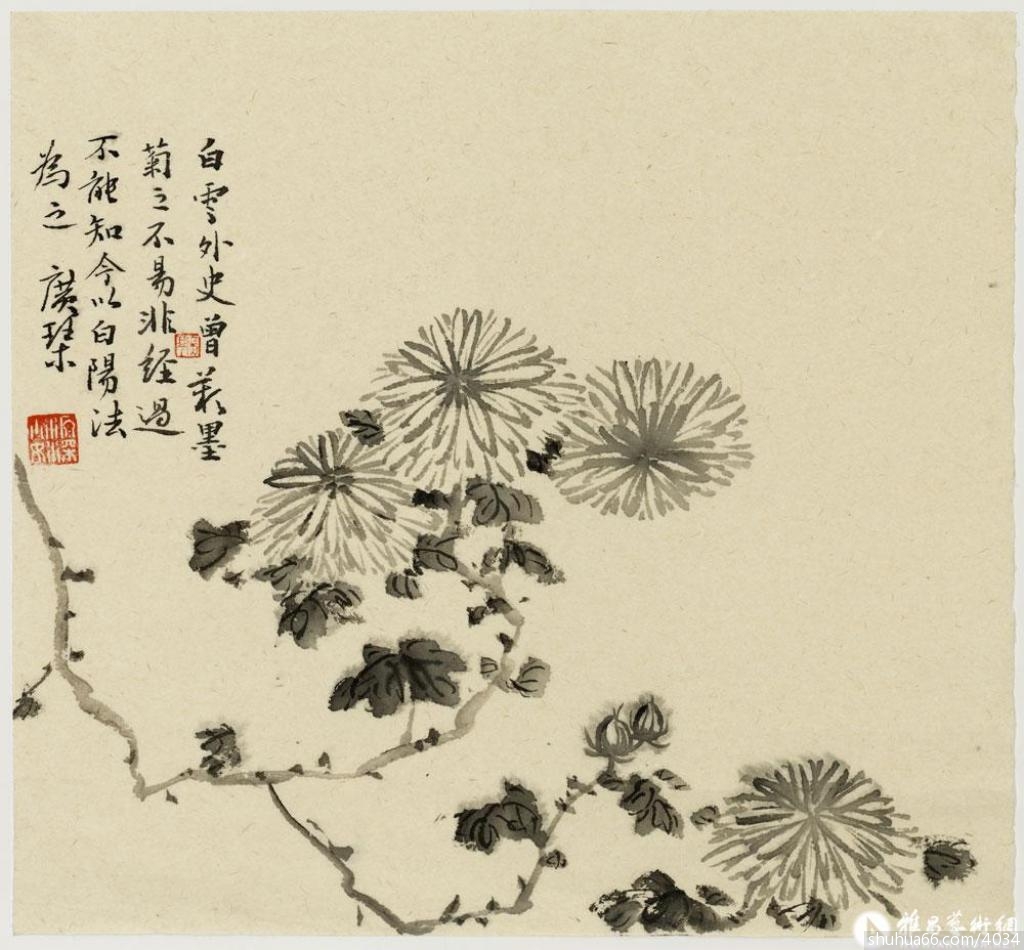 白雲外史曾羨墨
菊之不易非經過
不能知今以白陽法
為之 廣琹
雅昌藝術網
shuhua66.com/4034